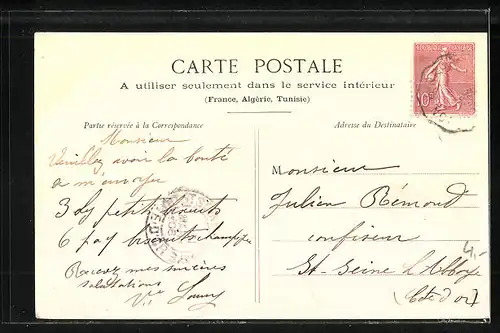 CARTE POSTALE
A utiliser seulement dans le service intérieur
(France, Algérie, Tunisie)
Partie réservée à la Correspondance
Adresse du Destinataire
Monsieur
Veuillez avoir la bonté
a m'envoyer
3 petit
6 biscuits
Recevez mes sincères
salutations
Vve
Monsieur
Julien Rémond
confiseur
St-Seine l'Abbaye
(Côte d'or)
4,-
REPUBLIQUE FRANÇAISE
10